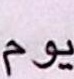 يوم